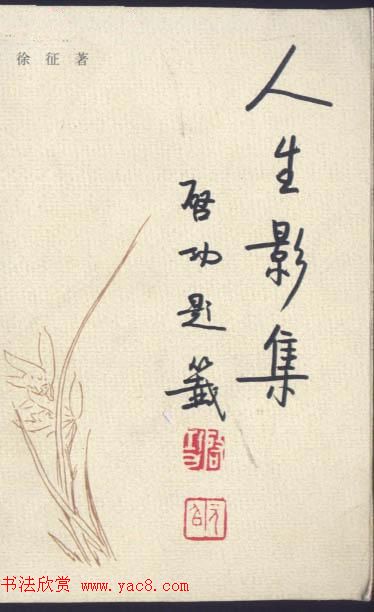 徐征著
人生影集
启功题籤
书法欣赏 www.yac8.com